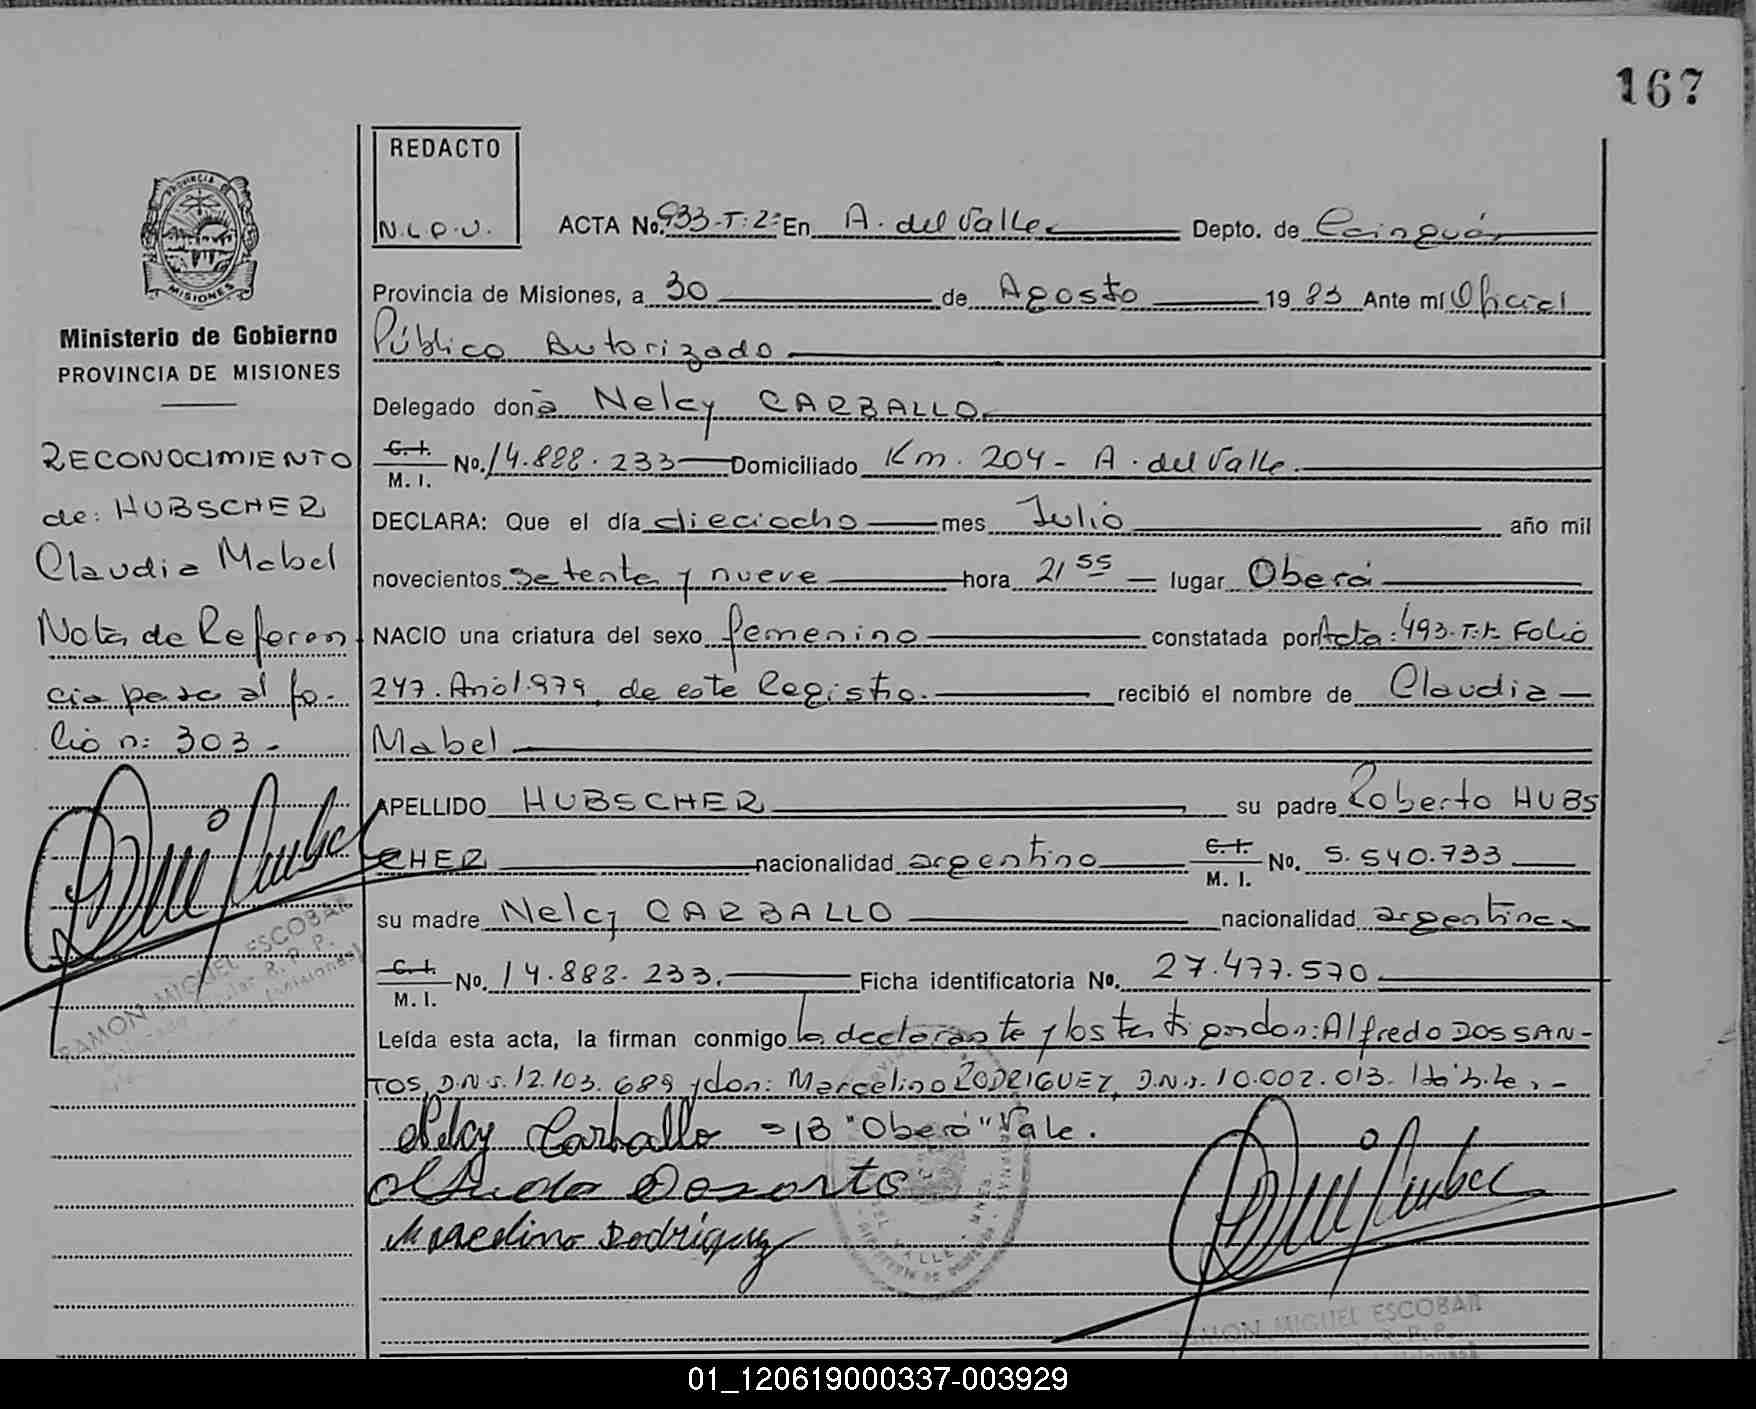 167
REDACTO
N.L.P.V.
ACTA No. 933-T:2= En A. del Valle Depto. de Cainguás
Provincia de Misiones, a 30 de Agosto 1983 Ante mí Oficial
Público Autorizado
Delegado donã Nelcy CARBALLO
C. I. M. I. No. 14.888.233 Domiciliado Km. 204- A. del Valle.
DECLARA: Que el día dieciocho mes Julio año mil
novecientos setenta y nueve hora 21 55 lugar Oberá
NACIO una criatura del sexo femenino constatada por Acta: 493-T:1= Folio
247. Año 1.979, de este Registro. recibió el nombre de Claudia
Mabel
APELLIDO HUBSCHER su padre Roberto HUBS
CHER nacionalidad argentino C. I. M. I. No. 5.540.733
su madre Nelcy CARBALLO nacionalidad argentina
C. I. M. I. No. 14.888.233. Ficha identificatoria No. 27.477.570
Leída esta acta, la firman conmigo la declarante y los testigos don: Alfredo DOS SAN-
TOS, D.N.I. 12.103.689 y don: Marcelino RODRIGUEZ, D.N.I. 10.002.013. Hábiles.-
Nelcy Carballo =13 "Oberá" Vale.
Marcelino Rodriguez
RAMON MIGUEL ESCOBAR
PROVINCIA DE
MISIONES
Ministerio de Gobierno
PROVINCIA DE MISIONES
RECONOCIMIENTO
de: HUBSCHER
Claudia Mabel
Nota de Referen
cia pasa al fo-
lio n: 303-
RAMON MIGUEL ESCOBAR
R. P.
(Misiones)
01_120619000337-003929